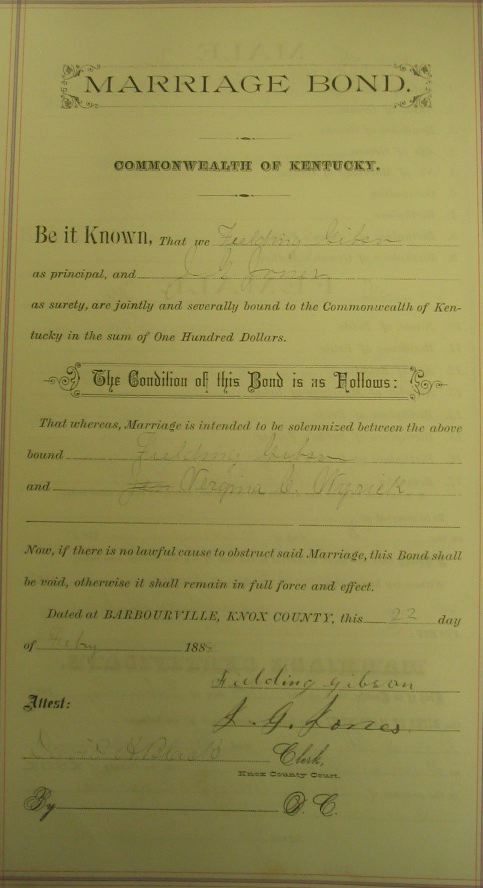 MARRIAGE BOND.
COMMONWEALTH OF KENTUCKY.
Be it Known, That we Fielding Gibson
as principal, and J G Jones
as surety, are jointly and severally bound to the Commonwealth of Ken-
tucky in the sum of One Hundred Dollars.
The Condition of this Bond is as Follows:
That whereas, Marriage is intended to be solemnized between the above
bound Fielding Gibson
and Vergina C. Wyrick
Now, if there is no lawful cause to obstruct said Marriage, this Bond shall
be void, otherwise it shall remain in full force and effect.
Dated at BARBOURVILLE, KNOX COUNTY, this 22 day
of Feby 188
Fielding Gibson
Attest:
J. G. Jones
Black Clerk,
Knox County Court.
By D. C.